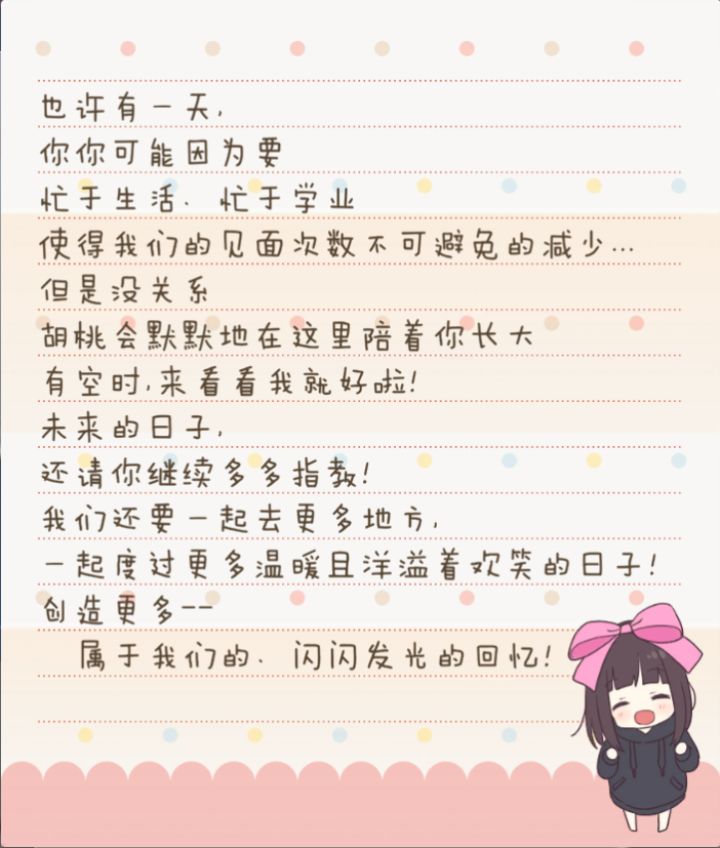 也许有一天,
你你可能因为要
忙于生活、忙于学业
使得我们的见面次数不可避免的减少…
但是没关系
胡桃会默默地在这里陪着你长大
有空时,来看看我就好啦!
未来的日子,
还请你继续多多指教!
我们还要一起去更多地方,
一起度过更多温暖且洋溢着欢笑的日子!
创造更多--
属于我们的、闪闪发光的回忆!